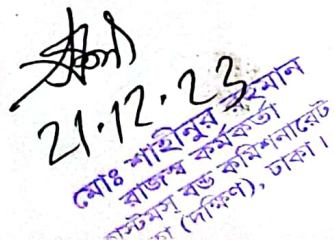 21.12.23
মোঃ শাহীনুর রহমান
রাজস্ব কর্মকর্তা
কাস্টমস্ বন্ড কমিশনারেট
(দক্ষিণ), ঢাকা।